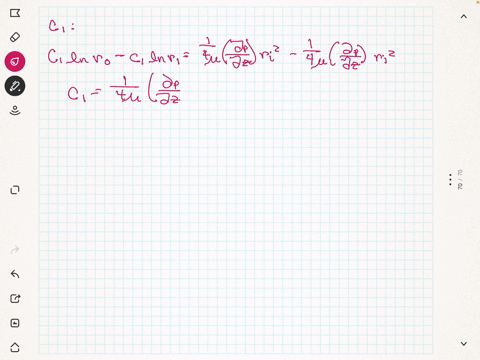 C₁:
C₁ ln r₀ - C₁ ln r₁ = 1/4μ (∂p/∂z) rᵢ² - 1/4μ (∂p/∂z) rᵢ²
C₁ = 1/4μ (∂p/∂z
70 / 70